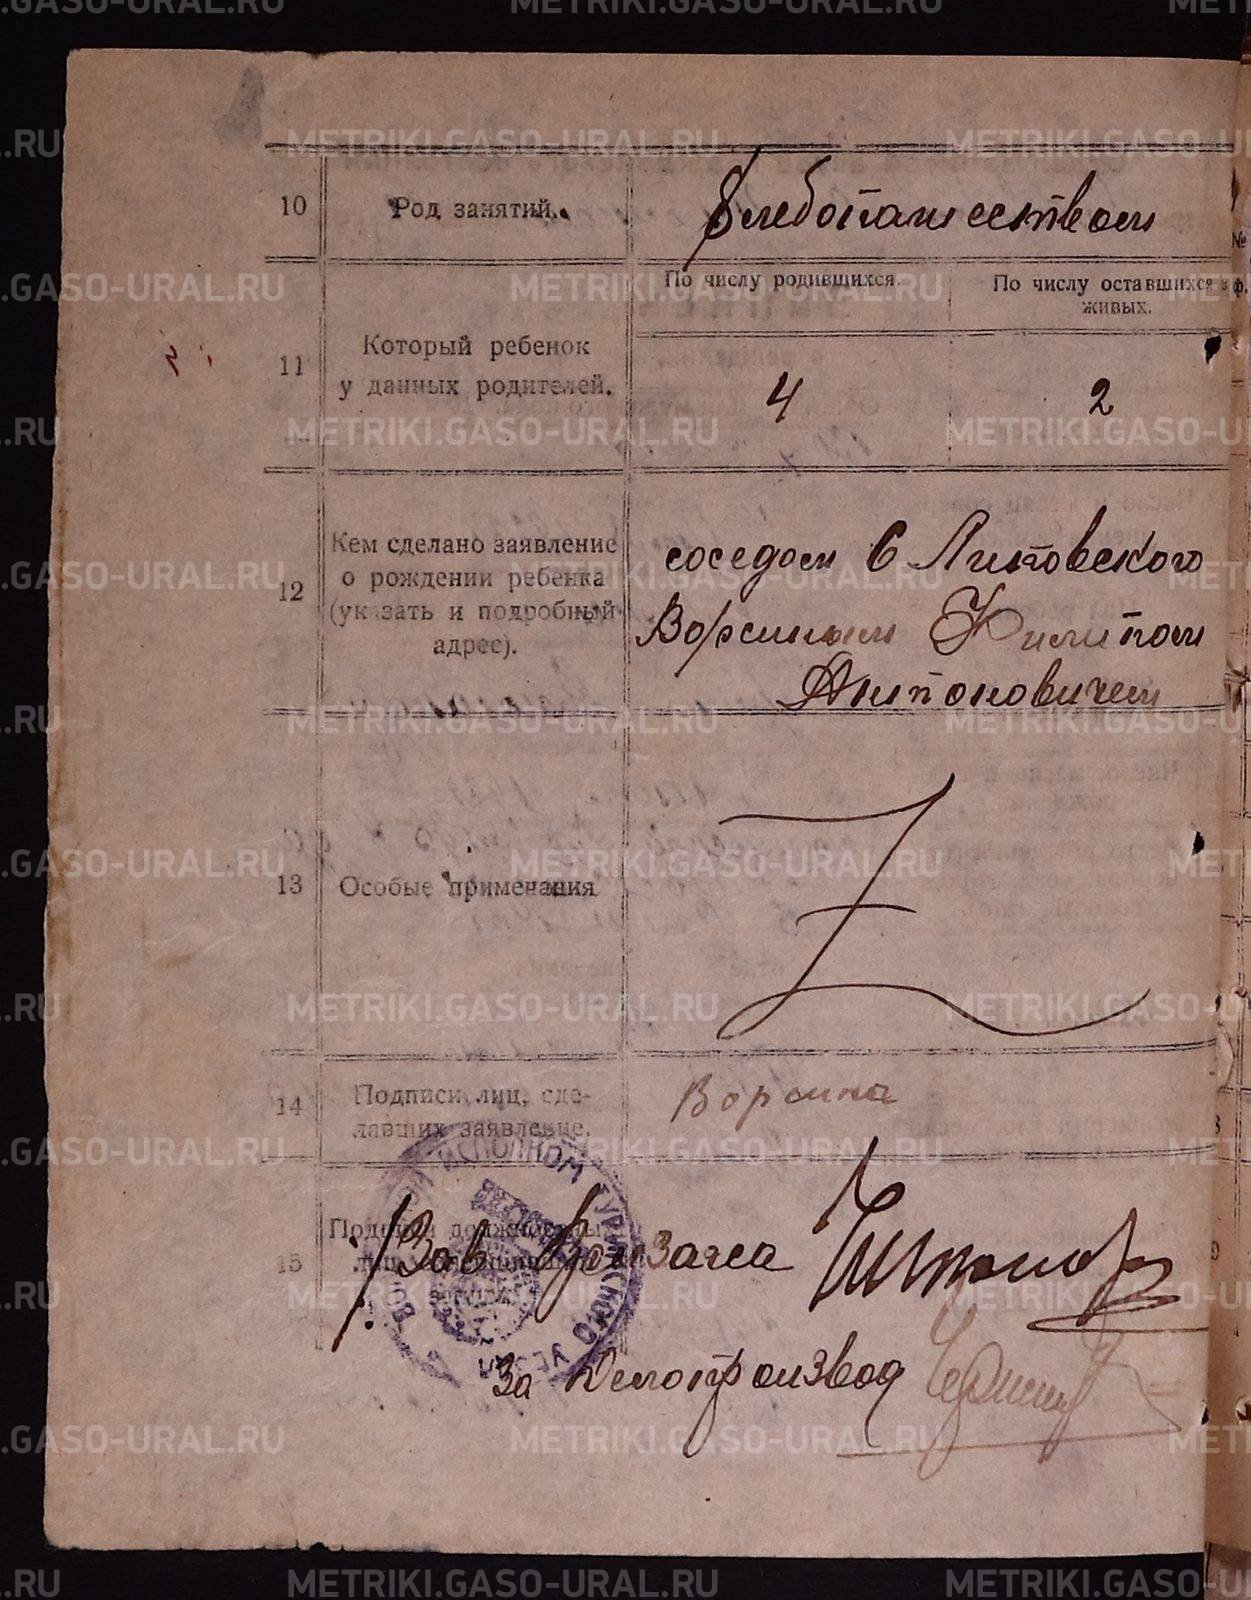 10 Род занятий. Хлебопашеством
По числу родившихся. По числу оставшихся в живых.
11 Который ребенок
у данных родителей. 4 2
12 Кем сделано заявление
о рождении ребенка
(указать и подробный
адрес).
соседом С Липовского
Ворсиным Филипом
Антоновичем
13 Особые примечания
14 Подписи лиц, сде-
лавших заявление.
Ворсина
15 Подписи должностных
лиц
Зав
За Делопроизвод
ИСПОЛКОМ ТУРИНСКОГО
METRIKI.GASO-URAL.RU